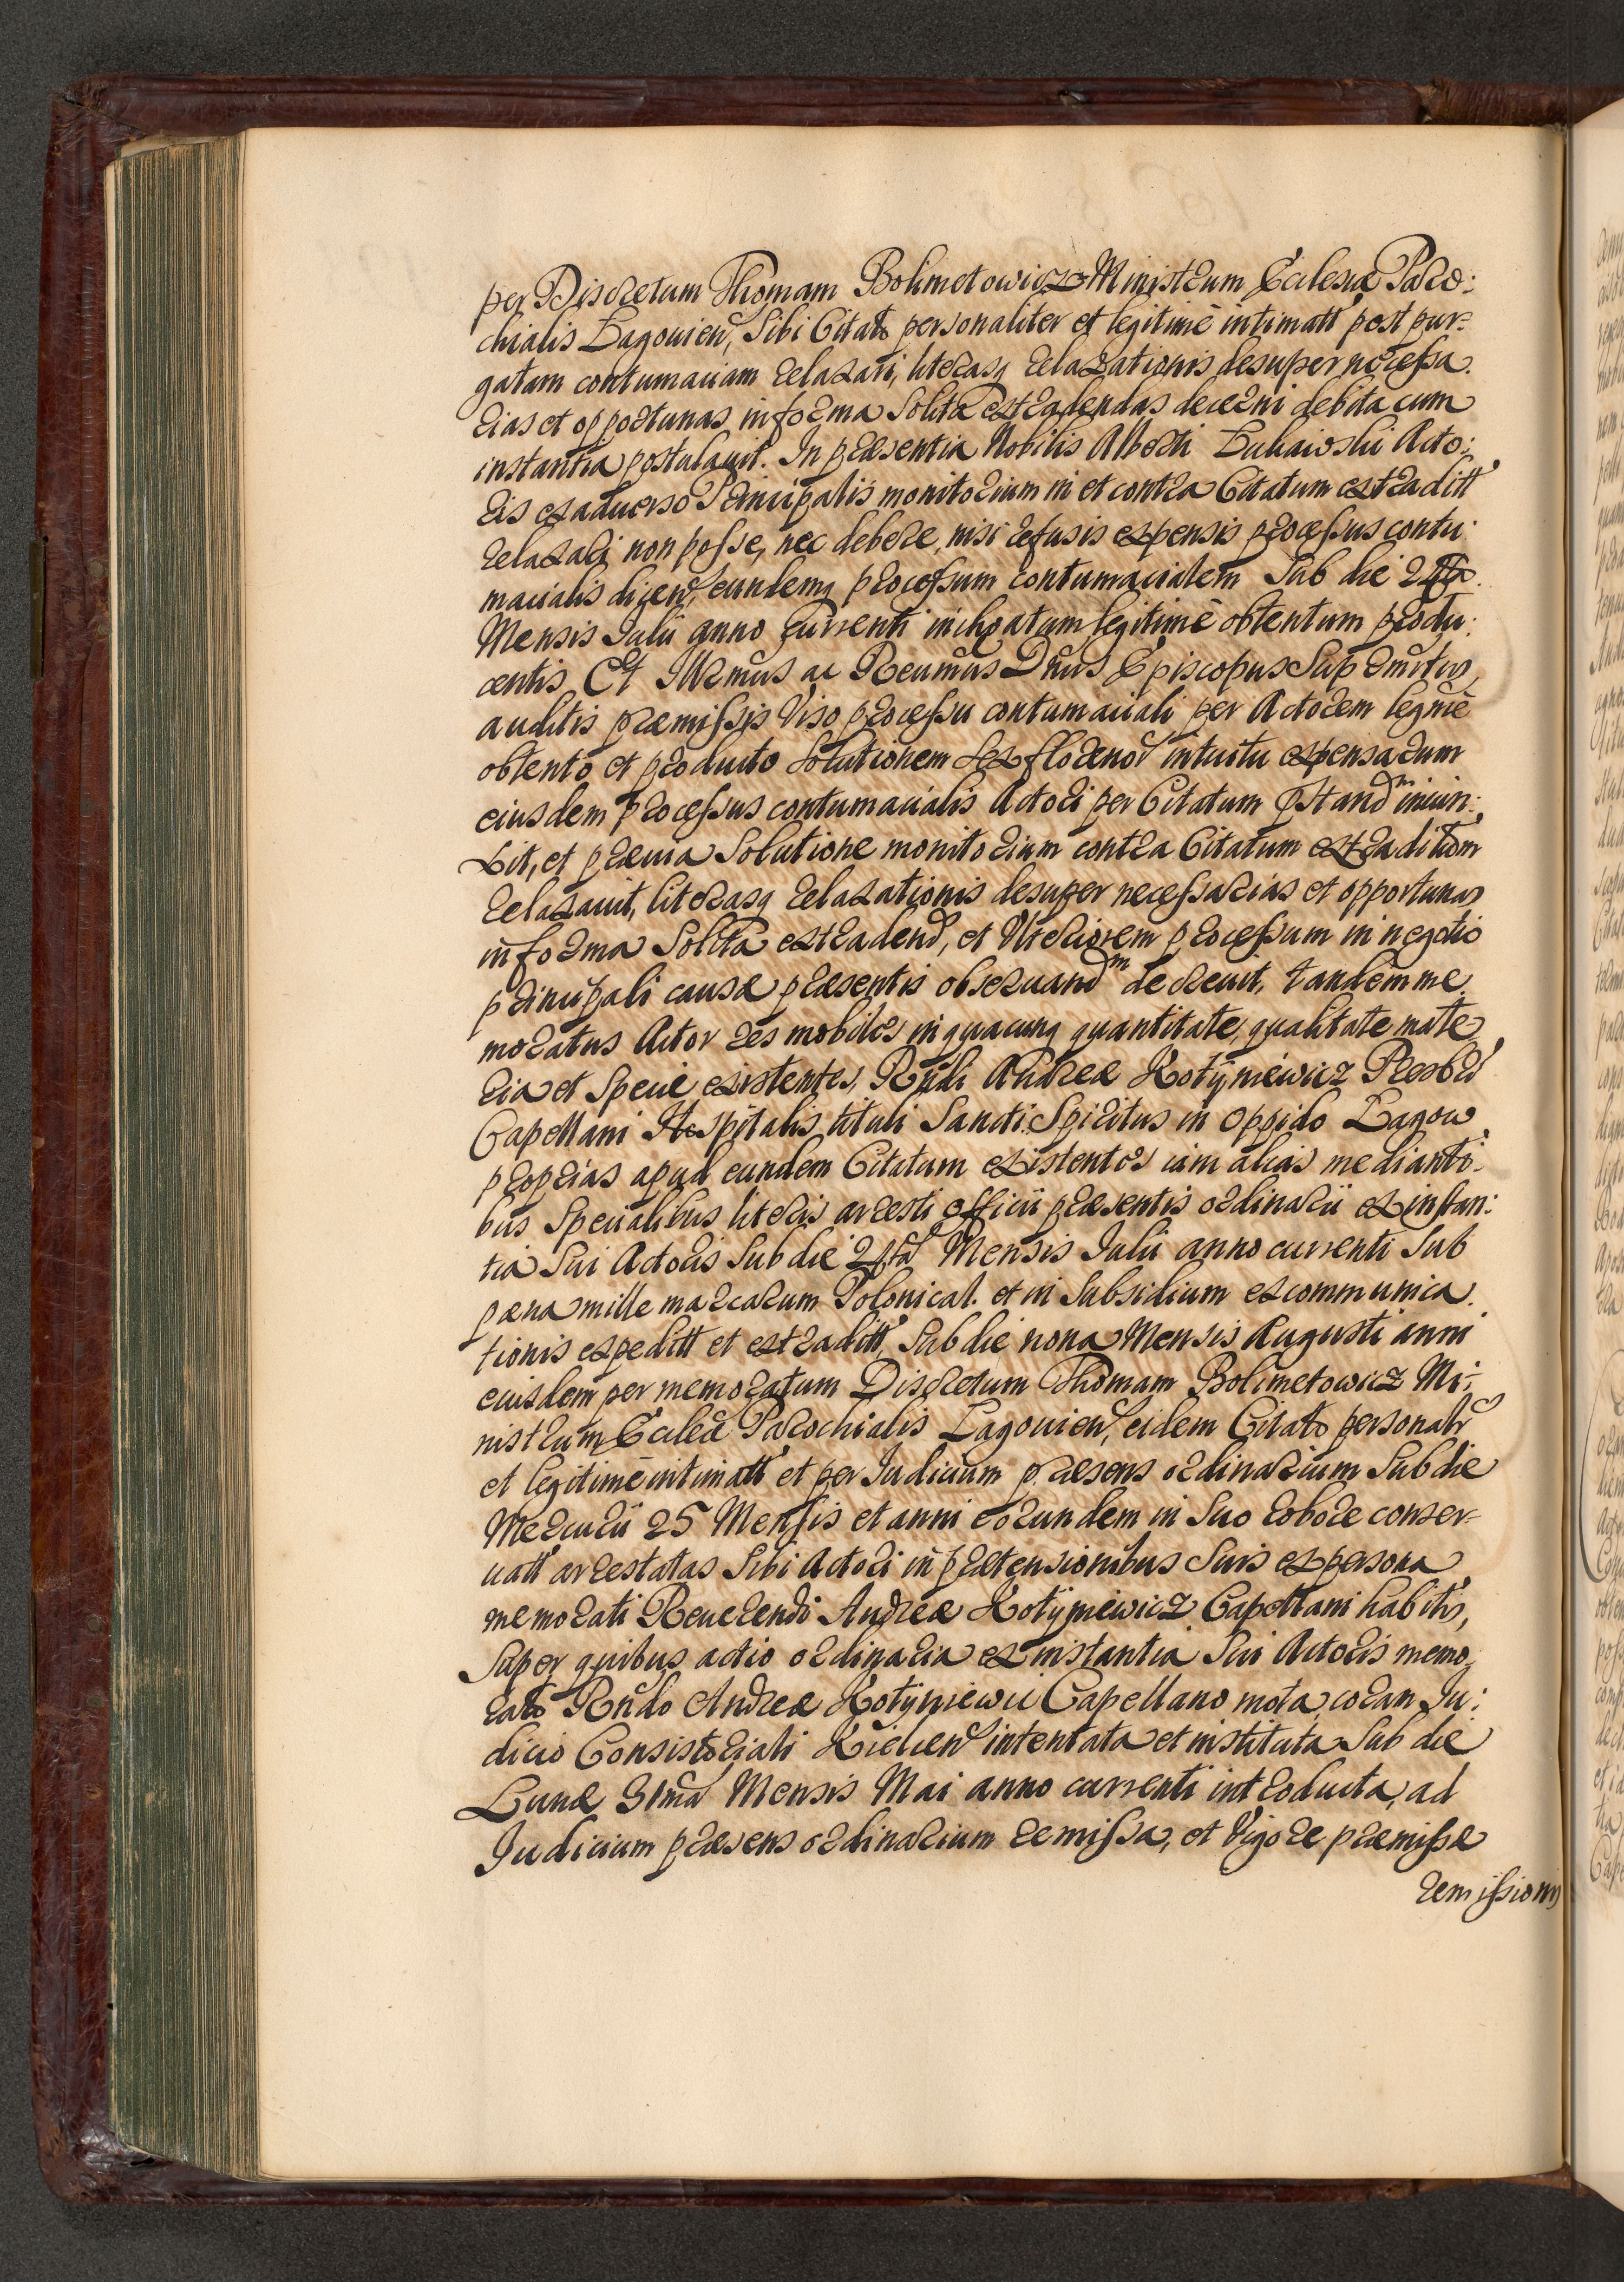 per Discretum Thomam Bolimetowicz Ministrum Ecclesiæ Paro:
chialis Lagouien, Sibi Citato personaliter et legitimè intimatt post pur:
gatam contumaciam relaxari, literasq relaxationis desuper necessa.
rias et opportunas in forma Solita extradendas decerni debita cum
instantia postulauit. In præsentia Nobilis Alberti Acto:
ris ex aduerso Principalis monitorium in et contra Citatum extraditt
relaxari non posse, nec debere, nisi refusis expensis processus contu:
macialis dicen, eundemq processum contumacialem Sub die 24ta
Mensis Julii anno currenti inchoatum legitimè obtentum produ:
centis Et Illrmus ac Reumus Dnus Episcopus
auditis præmissis Viso processu contumaciali per Actorem legitimè
obtento et producto Solutionem Sex florenor intuitu expensarum
eiusdem processus contumacialis Actori per Citatum pstandm iniun:
xit, et præuia Solutione monitorium contra Citatum extraditum
relaxauit, literasq relaxationis desuper necessarias et opportunas
in forma Solita extradend, et Vlteriorem processum in negotio
principali causæ præsentis obseruandm decreuit, tandem me
moratus Actor res mobiles in quacunq quantitate, qualitate mate
ria et Specie existentes, Rndi Andreæ Kotyniewicz Presbri
Capellani Hospitalis tituli Sancti Spiritus in Oppido Lagow
proprias apud eundem Citatum existentes iam alias medianti:
bus Specialibus literis arresti officii præsentis ordinarii ex instan:
tia Sui Actoris Sub die 24ta Mensis Julii anno currenti Sub
pæna mille marcarum Polonical. et in Subsidium excommunica.
tionis expeditt et extraditt, Sub die nona Mensis Augusti anni
eiusdem per memoratum Discretum Thomam Bolimetowicz Mi:
nistrum Ecclæ Parochialis Lagouien, eidem Citato personalr
et legitimè intimatt et per Iudicium præsens ordinarium Sub die
Mercurii 25 Mensis et anni eorundem in Suo robore conser:
uatt arrestatas Sibi Actori in prætensionibus Suis ex persona
memorati Reuerendi Andreæ Kotyniewicz Capellani habitis,
Super quibus actio ordinaria ex instantia Sui Actoris memo:
rato Rndo Andreæ Kotyniewic Capellano mota, coram Iu:
dicio Consistoriali Kielcen intentata et instituta Sub die
Lunæ 31ma Mensis Mai anno currenti introducta, ad
Iudicium præsens ordinarium remissa, et Vigore præmissæ
remissionis